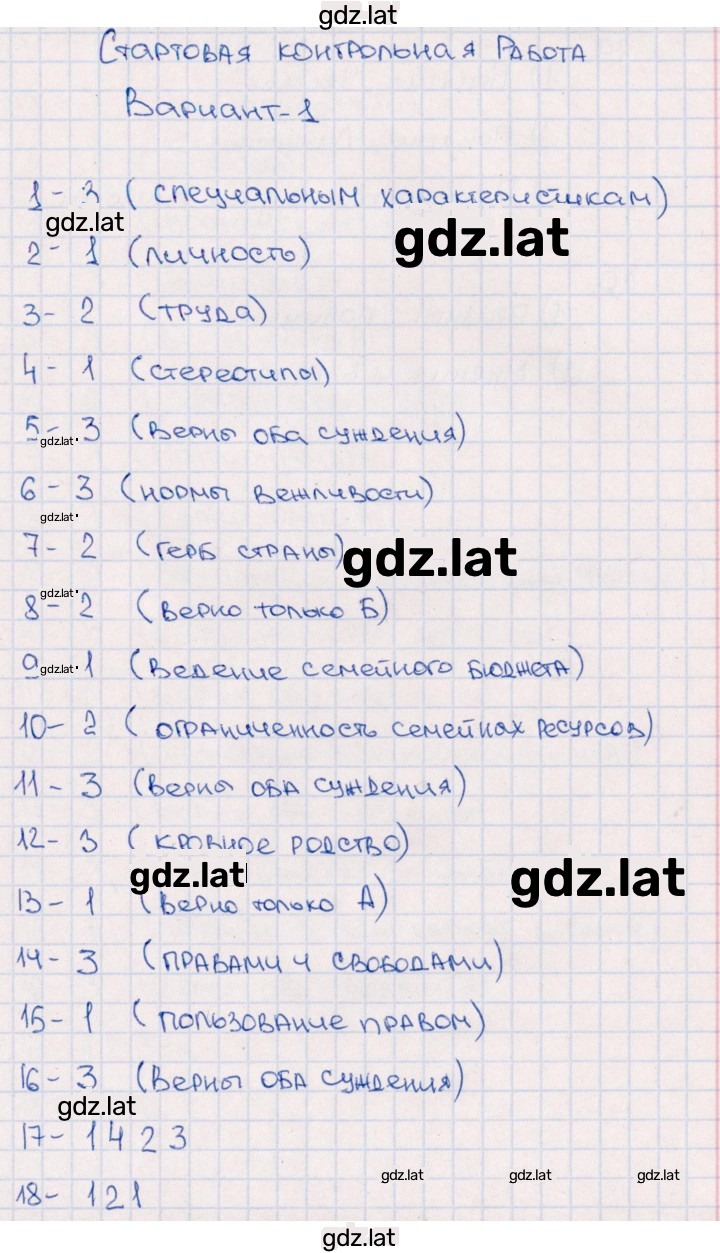 gdz.lat
Стартовая контрольная работа
Вариант-1
1- 3 (специальным характеристикам)
gdz.lat
gdz.lat
2- 1 (личность)
3- 2 (труда)
4- 1 (стереотипы)
5- 3 (Верны оба суждения)
gdz.lat
6- 3 (нормы вежливости)
gdz.lat
7- 2 (герб страны)
gdz.lat
gdz.lat
8- 2 (верно только Б)
9- 1 (Ведение семейного бюджета)
gdz.lat
10- 2 (ограниченность семейных ресурсов)
11- 3 (Верны оба суждения)
12- 3 (кровное родство)
gdz.lat
gdz.lat
13- 1 (верно только А)
14- 3 (правами и свободами)
15- 1 (пользование правом)
16- 3 (Верны оба суждения)
gdz.lat
17- 1 4 2 3
gdz.lat gdz.lat gdz.lat
18- 1 2 1
gdz.lat